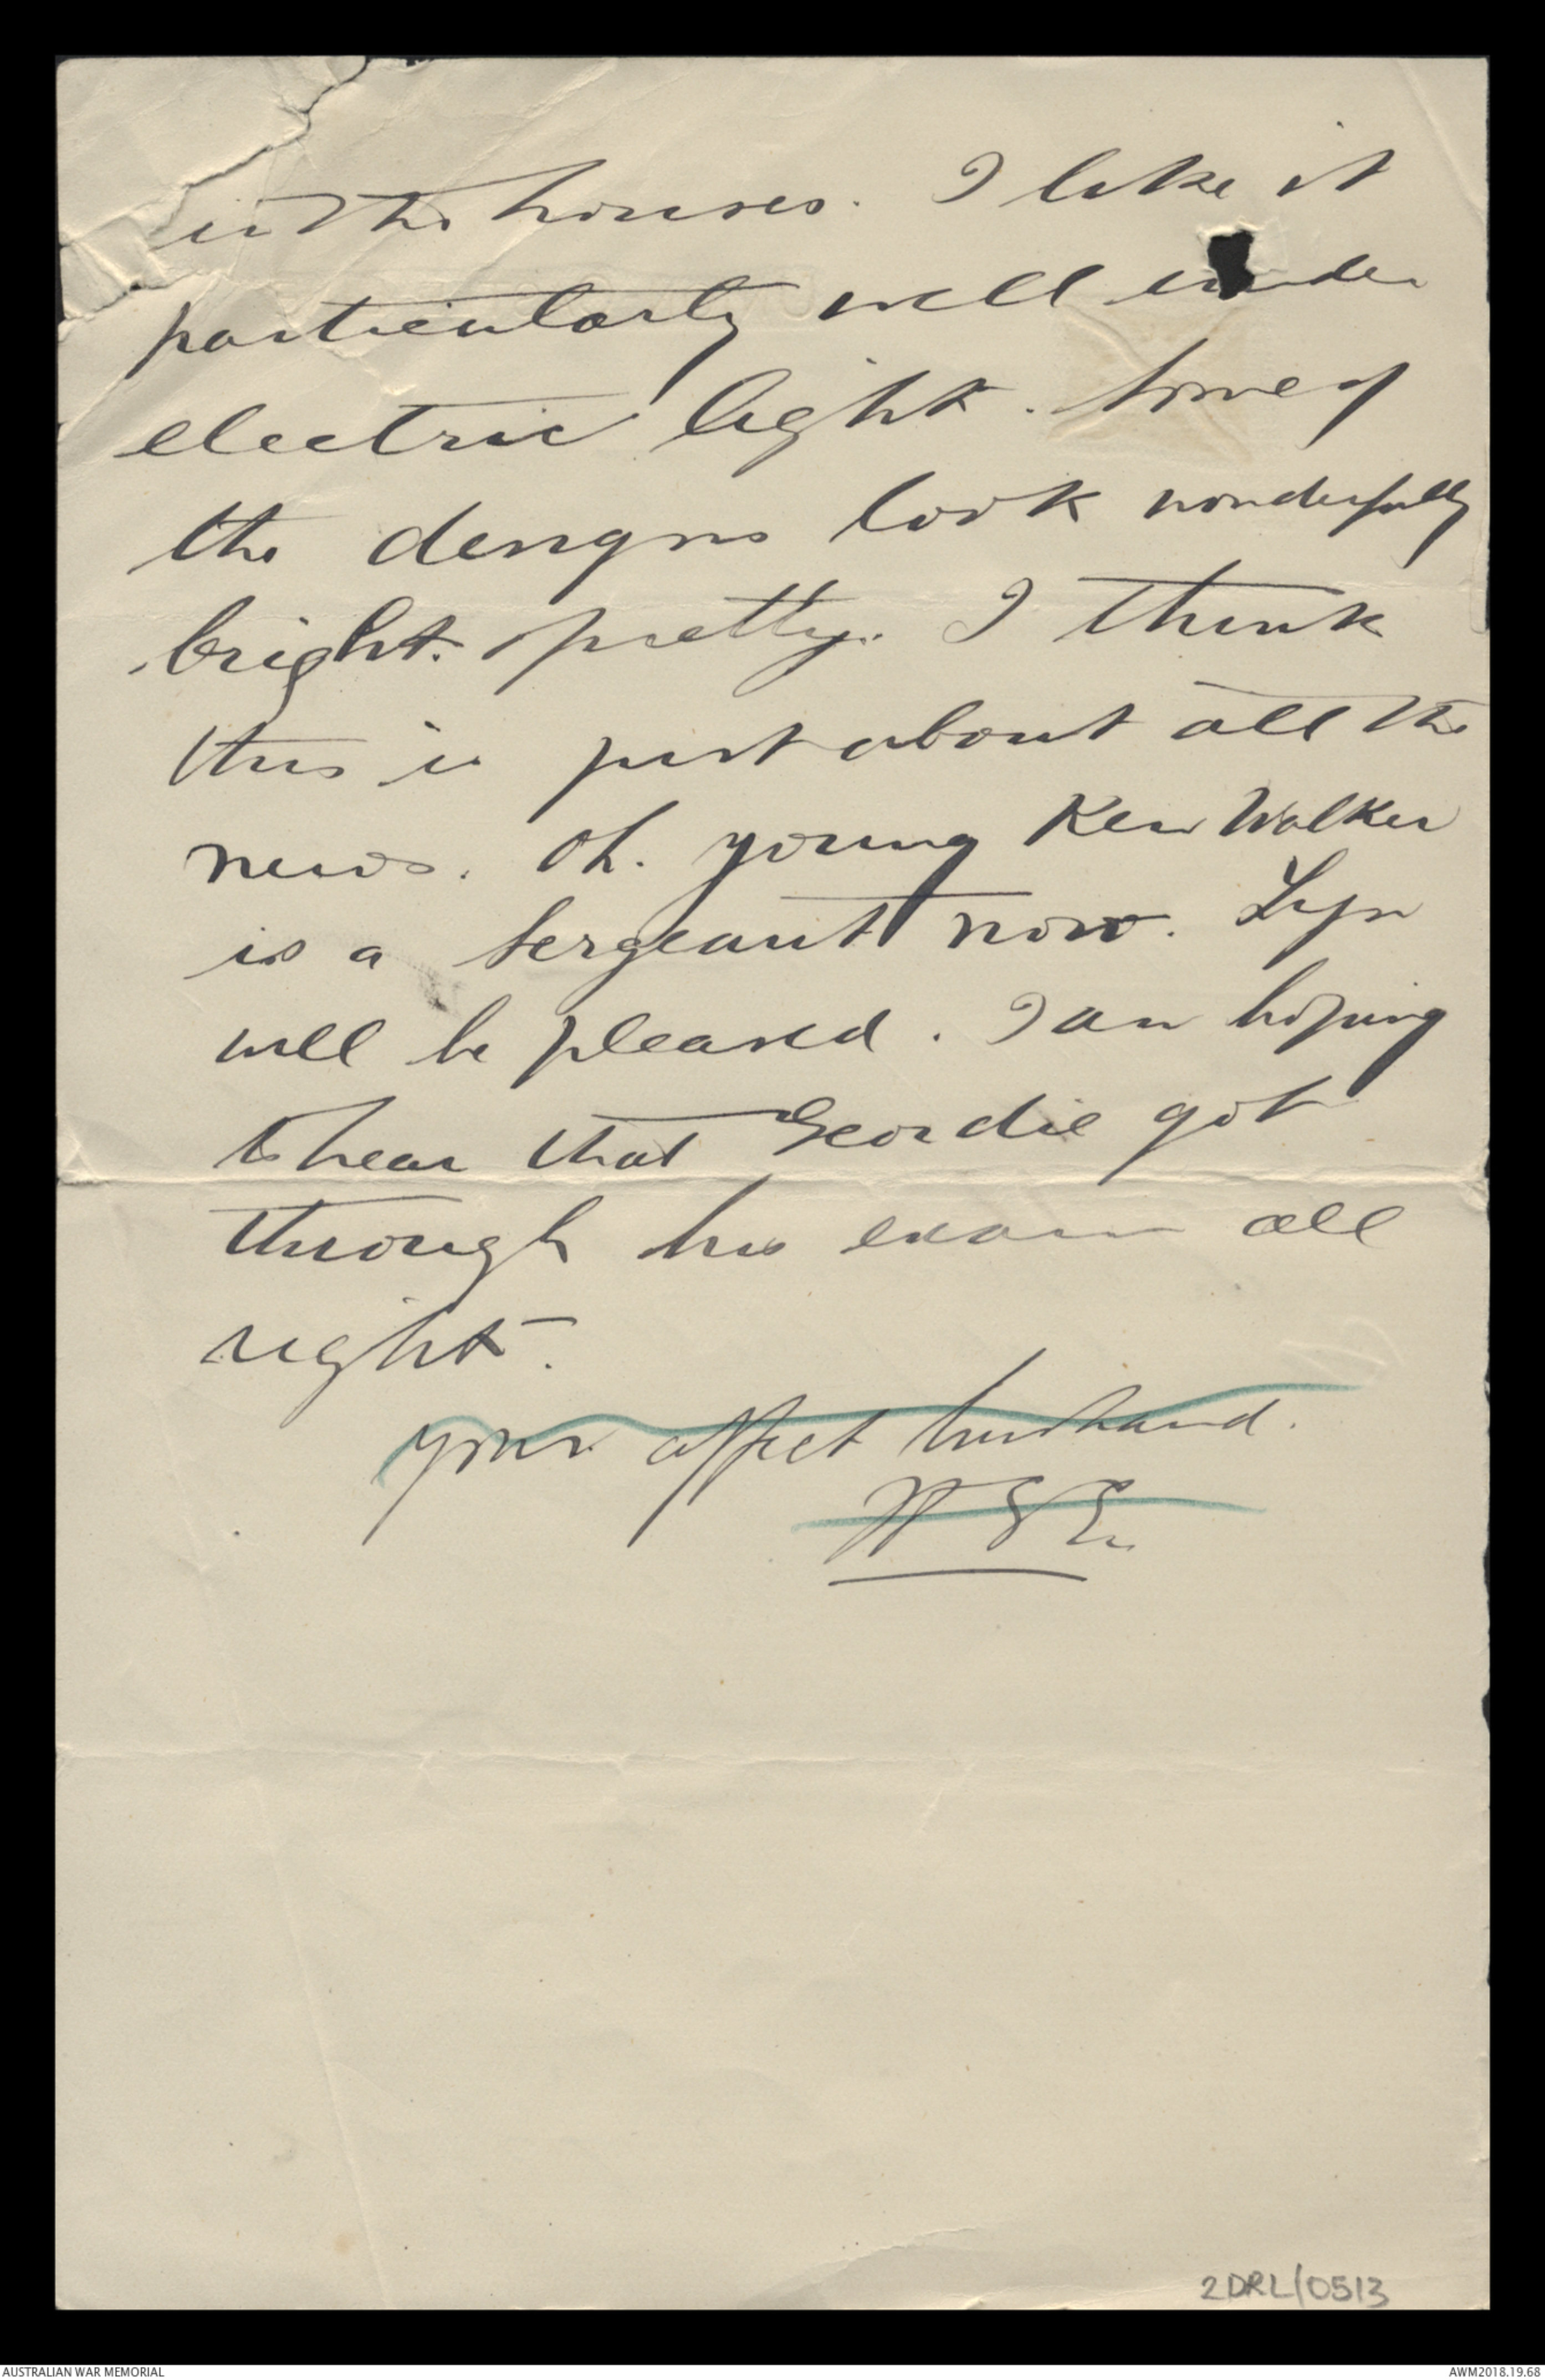 in the houses. I like it
particularly well under
electric light. Some of
the designs look wonderfully
bright. pretty. I think
this is just about all the
news. Oh. young Ken Walker
is a Sergeant now. Syn
will be pleased. I am hoping
to hear that Geordie got
through his exam all
right.
Your affect husband.
2DRL/0513
AUSTRALIAN WAR MEMORIAL
AWM2018.19.68